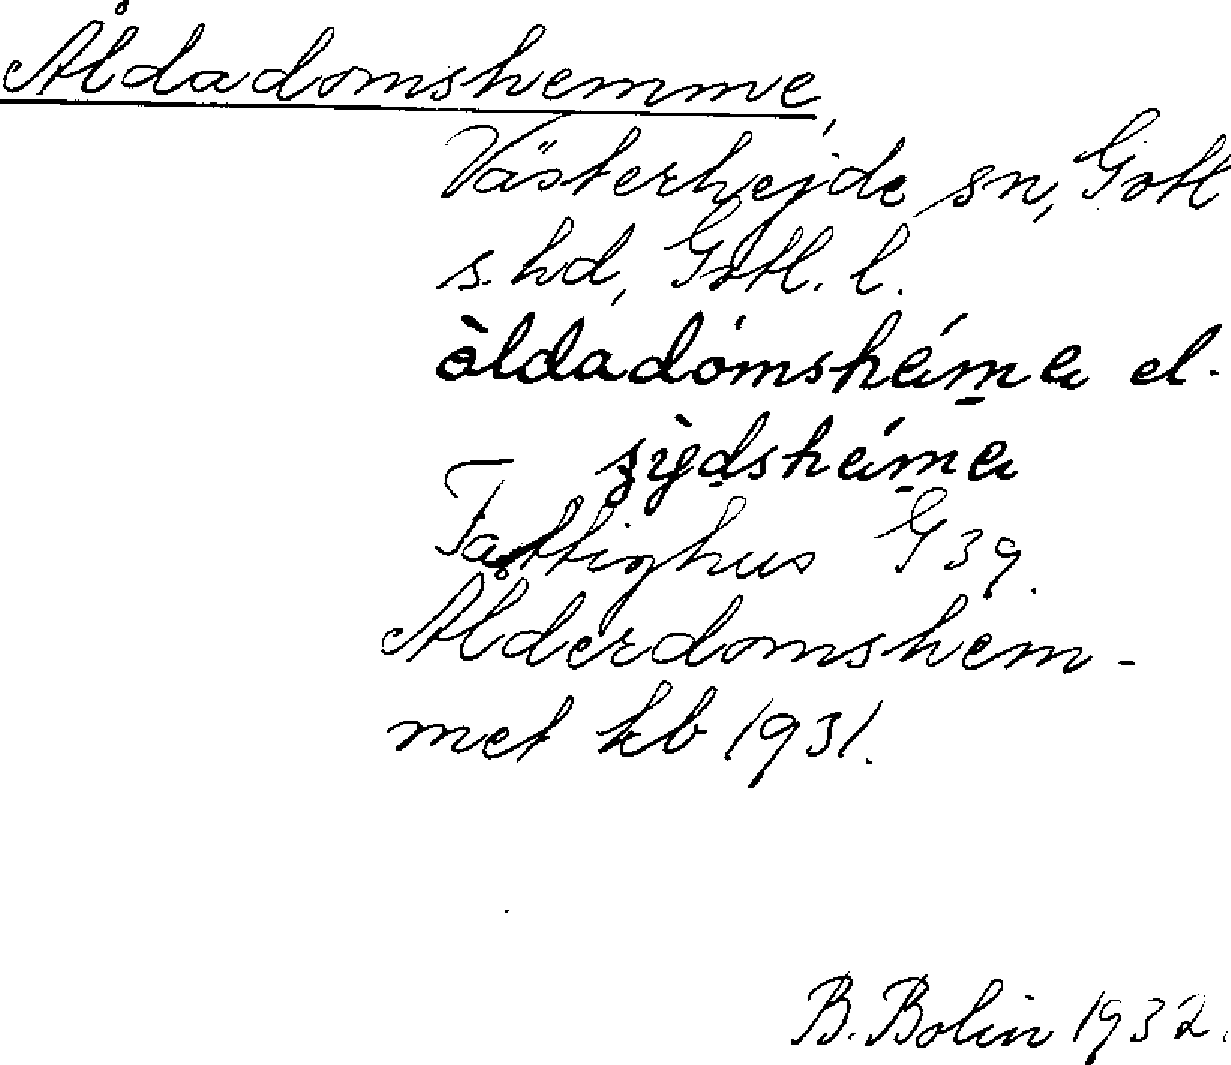 Åldadomshemme,
Västerhejde sn, Gotl
s. hd, Gotl. l.
åldadómshémɐ el.
sỳdshémɐ
Fattighus G 39.
Ålderdomshem-
met kb 1931.
B. Bolin 1932.